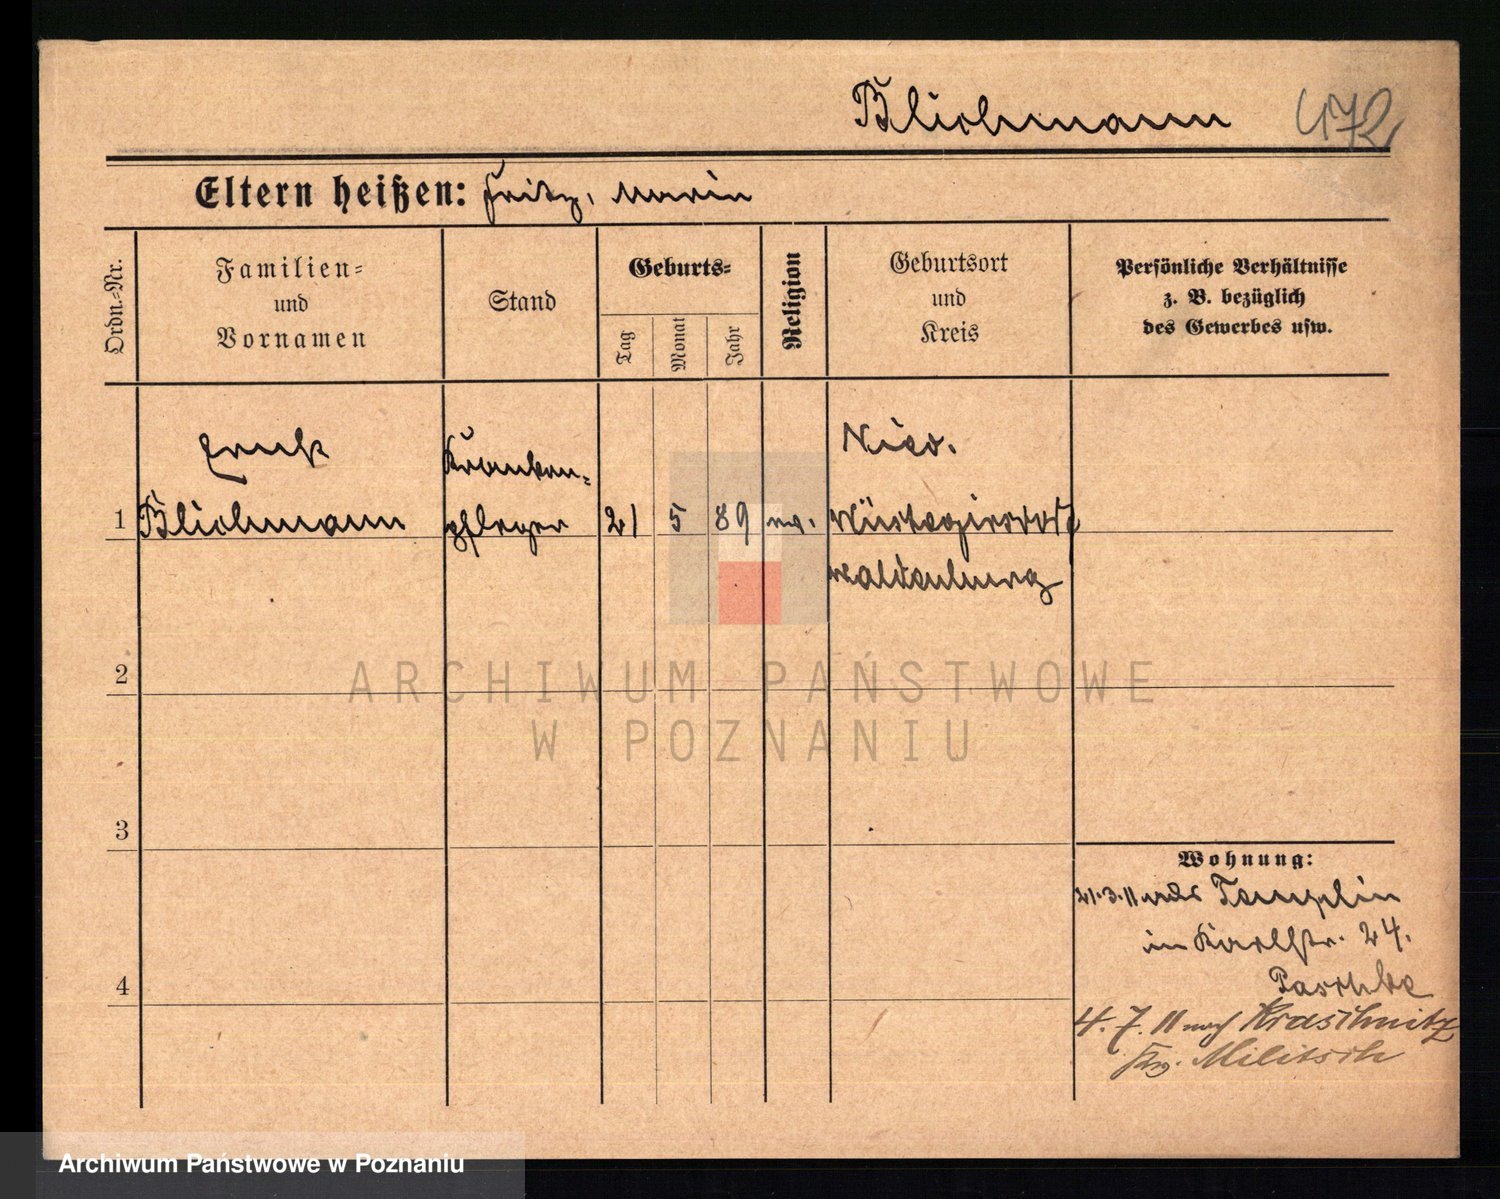 Blichmann 472
Eltern heißen: Fritz, Marie
Ordn.-Nr.
Familien-
und
Vornamen
Stand
Geburts-
Tag
Monat
Jahr
Religion
Geburtsort
und
Kreis
Persönliche Verhältnisse
z. B. bezüglich
des Gewerbes usw.
Ernst Kranken- Nied.
1 Blichmann pfleger 21 5 89 ev. Wüstegiersdorf
Waldenburg
2
3
4
Wohnung:
21.3.11 aus Templin
in Karlstr. 24.
Paschke
4.7.11 nach Kraschnitz
Krs. Militsch
ARCHIWUM PAŃSTWOWE
W POZNANIU
Archiwum Państwowe w Poznaniu